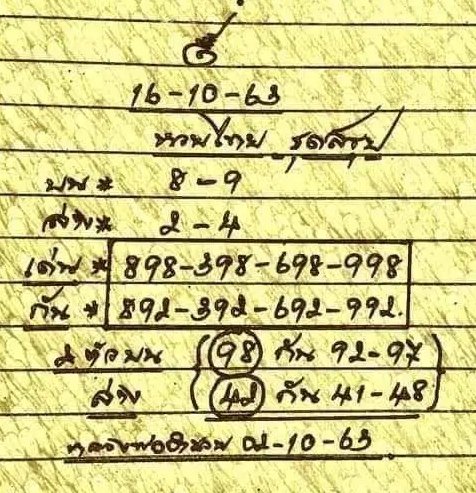 16-10-63
หวยไทย ชุดสรุป
บน * 8-9
ล่าง * 2-4
เด่น * 898-398-698-998
กัน * 892-392-692-992
2 ตัวบน 98 กัน 92-97
ล่าง 42 กัน 41-48
02-10-63